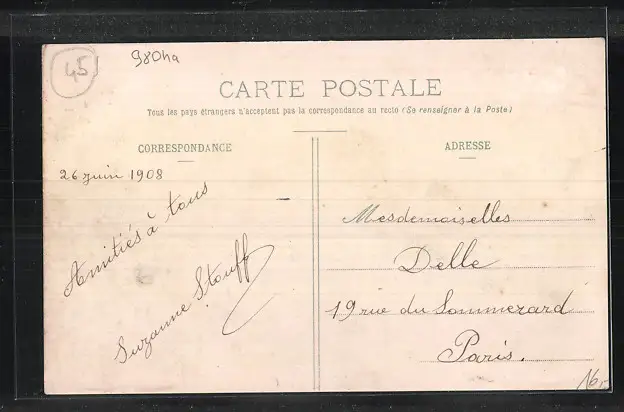 45
980ha
CARTE POSTALE
Tous les pays étrangers n'acceptent pas la correspondance au recto (Se renseigner à la Poste)
CORRESPONDANCE
26 juin 1908
Amitiés à tous
Suzanne Stouff
ADRESSE
Mesdemoiselles
Delle
19 rue du Sommerard
Paris.